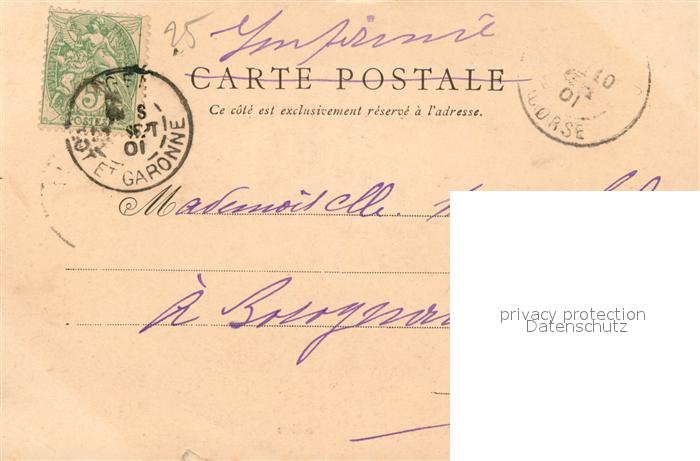 25 Imprimé
CARTE POSTALE
Ce côté est exclusivement réservé à l'adresse.
5
POSTES
8
SEPT
01
ET GARONNE
10
01
CORSE
Mademoiselle
privacy protection
Datenschutz
à Bocognano